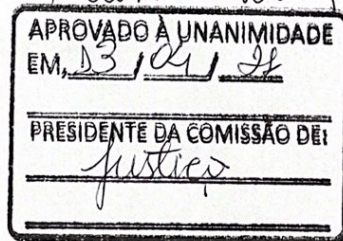 APROVADO À UNANIMIDADE
EM, 13 / 04 /
PRESIDENTE DA COMISSÃO DE:
Justiça